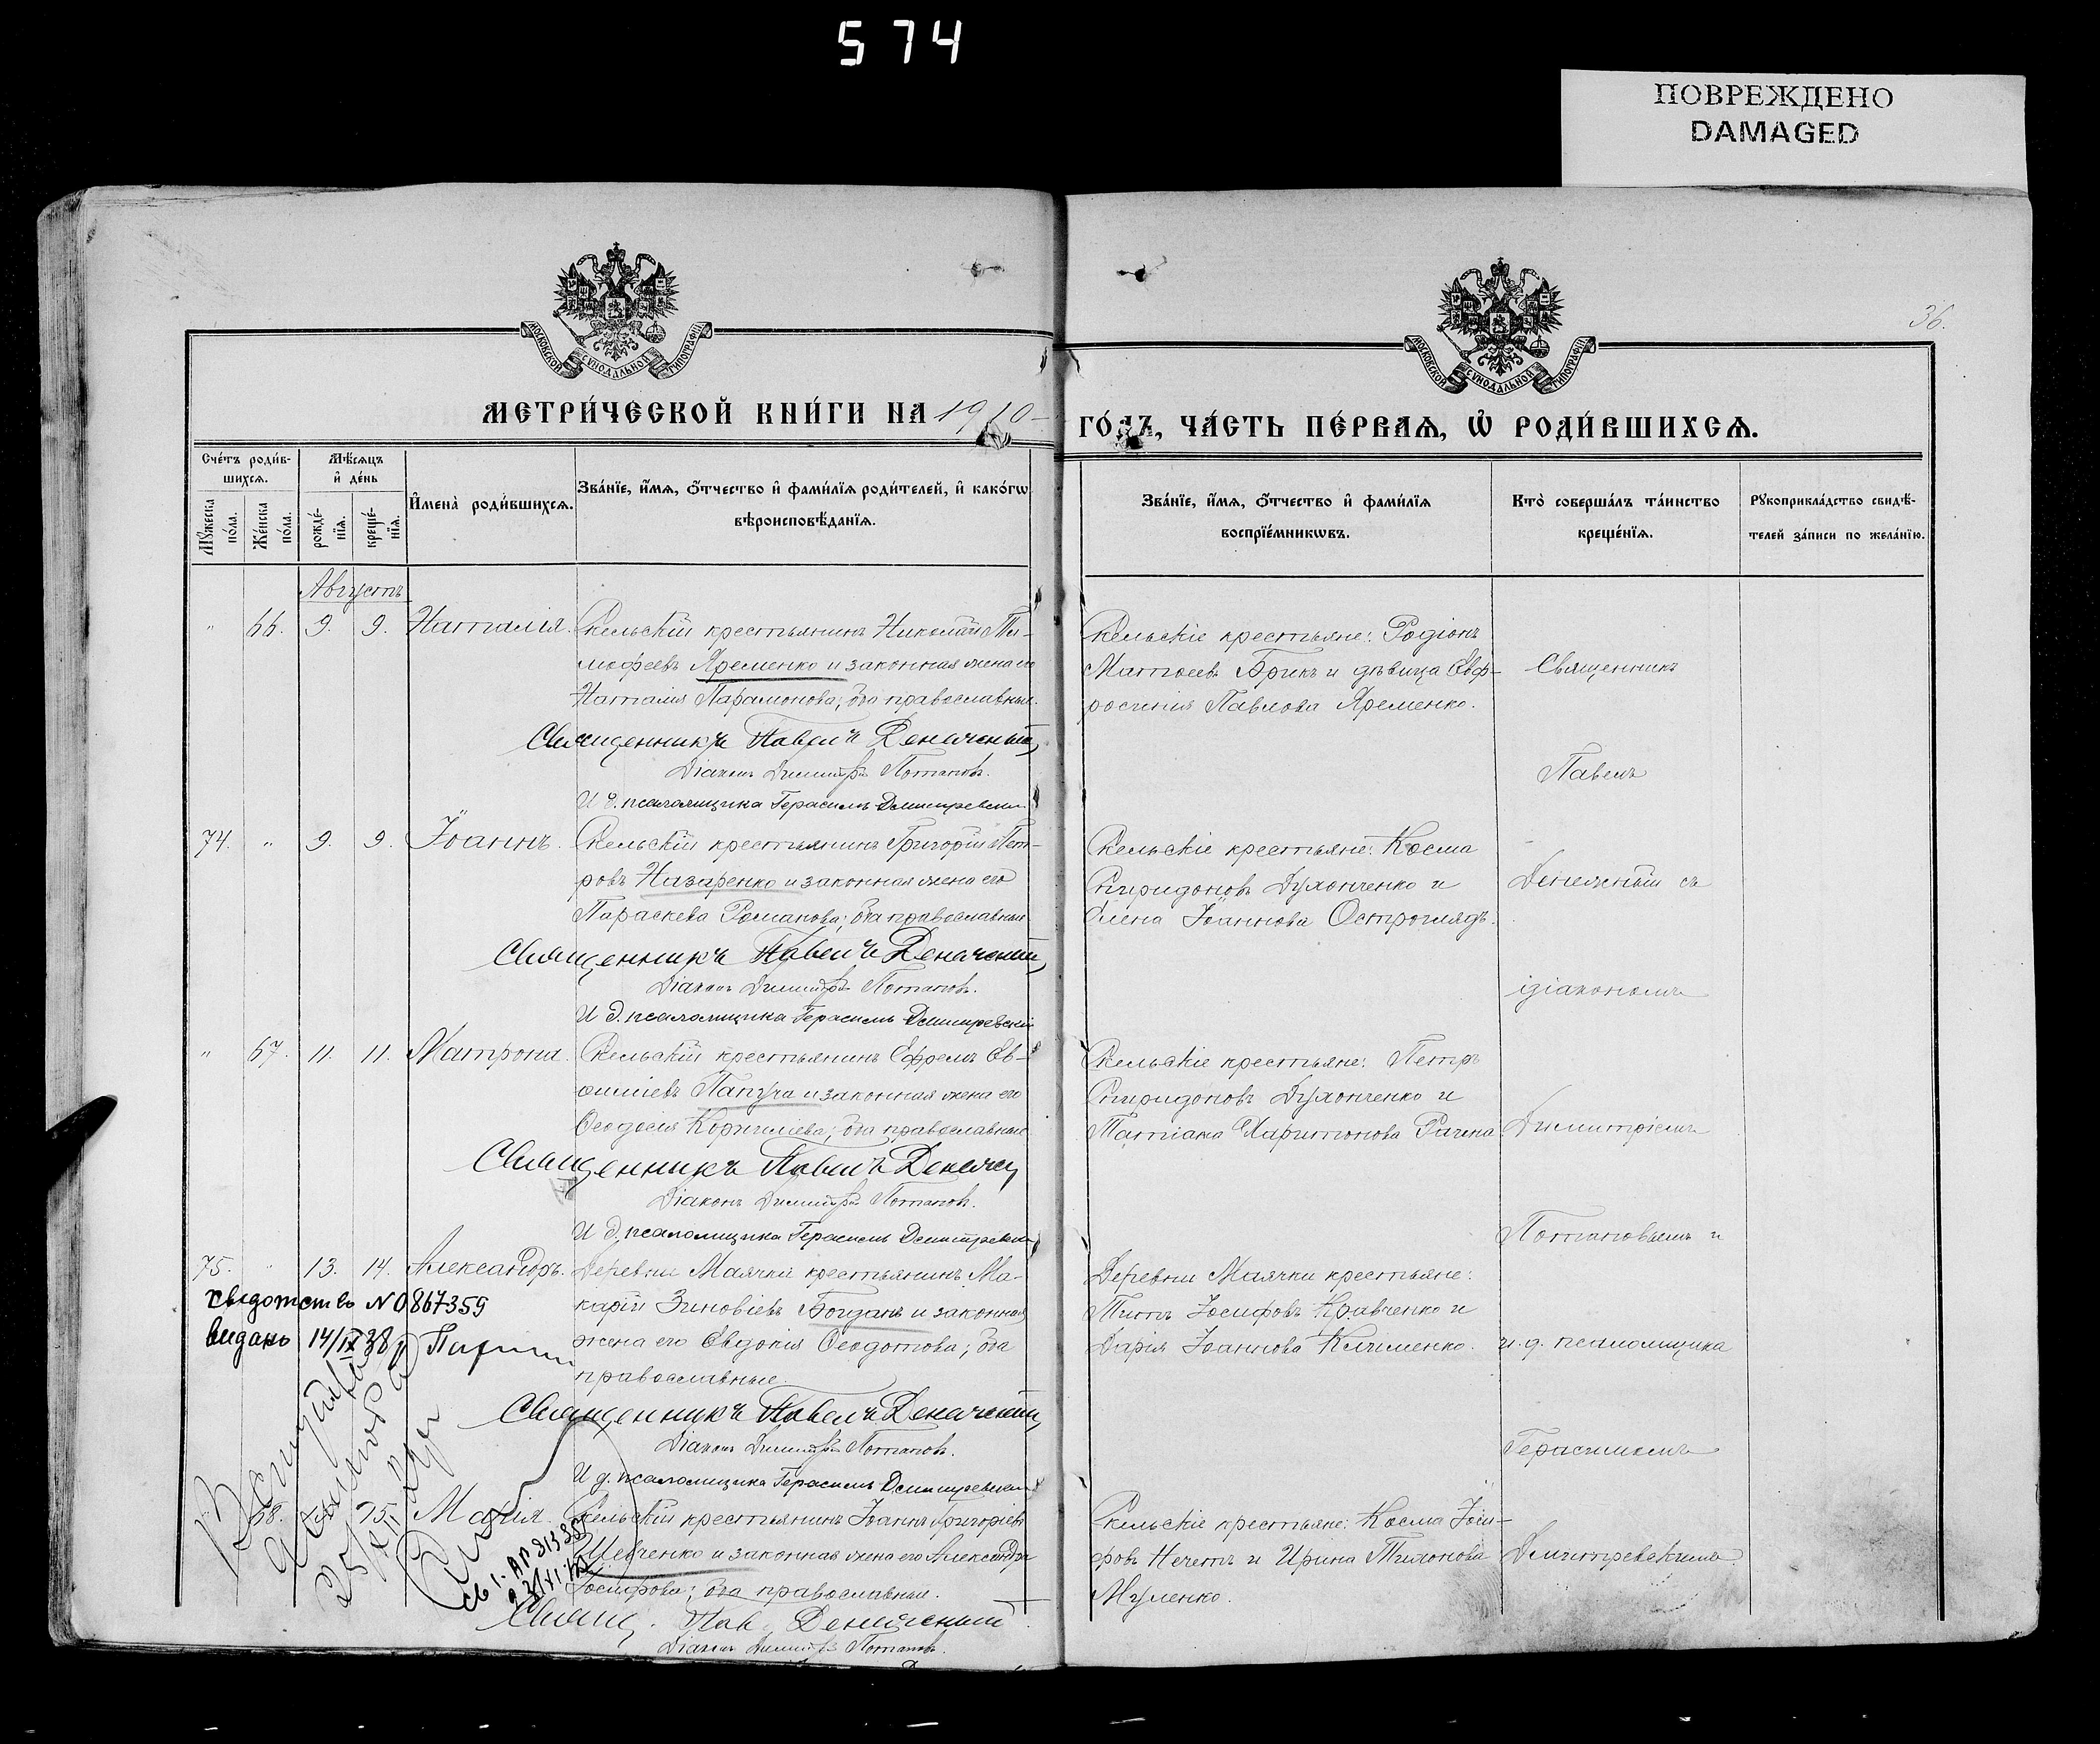 574
ПОВРЕЖДЕНО
DAMAGED
36.
МОСКОВСКОЙ СѴНОДАЛЬНОЙ ТИПОГРАФІИ
МОСКОВСКОЙ СѴНОДАЛЬНОЙ ТИПОГРАФІИ
МЕТРИ́ЧЕСКОЙ КНИ́ГИ НА 1910
ГО́ДЪ, ЧА́СТЬ ПЕ́РВАѦ, Ѡ҆ РОДИ́ВШИХСѦ.
Сче́тъ роди́в-
шихсѧ.
Мѣ́сѧцъ
и҆ де́нь
Мꙋ́жеска по́ла.
Же́нска по́ла.
рожде́-
нїѧ.
креще́-
нїѧ.
И҆мена̀ роди́вшихсѧ.
Зва́нїе, и҆́мѧ, ѻ҆́тчество и҆ фами́лїѧ роди́телей, и҆ како́гѡ
вѣроисповѣ́данїѧ.
Зва́нїе, и҆́мѧ, ѻ҆́тчество и҆ фами́лїѧ
воспрїе́мникѡвъ.
Кто̀ соверша́лъ та́инство
креще́нїѧ.
Рꙋкоприкла́дство свидѣ́-
телей за́писи по жела́нїю.
Августъ
" 66. 9. 9. Наталія. Скельскій крестьянинъ Николай Ти-
мофеевъ Яременко и законная жена его
Наталия Парамонова; оба православные.
Священникъ Павелъ
Діаконъ Димитрій Потаповъ.
И д. псаломщика Герасимъ Демитревскій
Скельскіе крестьяне: Родіонъ
Матѳеевъ Брикъ и дѣвица Евф-
росинія Павлова Яременко.
Священникъ
Павелъ
74. " 9. 9. Іоаннъ. Скельскій крестьянинъ Григорій Пет-
ровъ Назаренко и законная жена его
Параскева Романова; оба православные
Священникъ Павелъ
Діаконъ Димитрій Потаповъ.
И д. псаломщика Герасимъ Демитревскій
Скельскіе крестьяне: Косма
Спиридоновъ Духонченко и
Елена Іоаннова Остроглядъ.
съ
діакономъ
" 67. 11. 11. Матрона. Скельскій крестьянинъ Ефремъ Ев-
ѳиміевъ Папуча и законная жена его
Ѳеодосія Корнилиева; оба православные
Священникъ Павелъ
Діаконъ Димитрій Потаповъ.
И д. псаломщика Герасимъ Демитревскій
Скельскіе крестьяне: Петръ
Спиридоновъ Духонченко и
Татіана Харитонова Рачена
Димитріемъ
Потаповымъ и
75. " 13. 14. Александръ. Деревни Маячки крестьянинъ Ма-
карій Зиновіевъ Богданъ и законная
жена его Евдокія Ѳеодотова; оба
православные.
Священникъ Павелъ
Діаконъ Димитрій Потаповъ.
И д. псаломщика Герасимъ Демитревскій
свідотство NO 867359
видано 14/IX 38 р
Деревни Маячки крестьяне:
Титъ Іосифовъ Кравченко и
Дарія Іоаннова Клименко.
и. д. псаломщика
Герасимомъ
68. 15. 15. Марія. Скельскій крестьянинъ Іоаннъ Григоріевъ
Шевченко и законная жена его Александра
Іосифова; оба православные.
Свящ. Пав.
Діаконъ Димитрій Потаповъ.
Скельскіе крестьяне: Косма Іоси-
фовъ Нечетъ и Ирина Тимонова
Муленко.
Демитревскимъ.